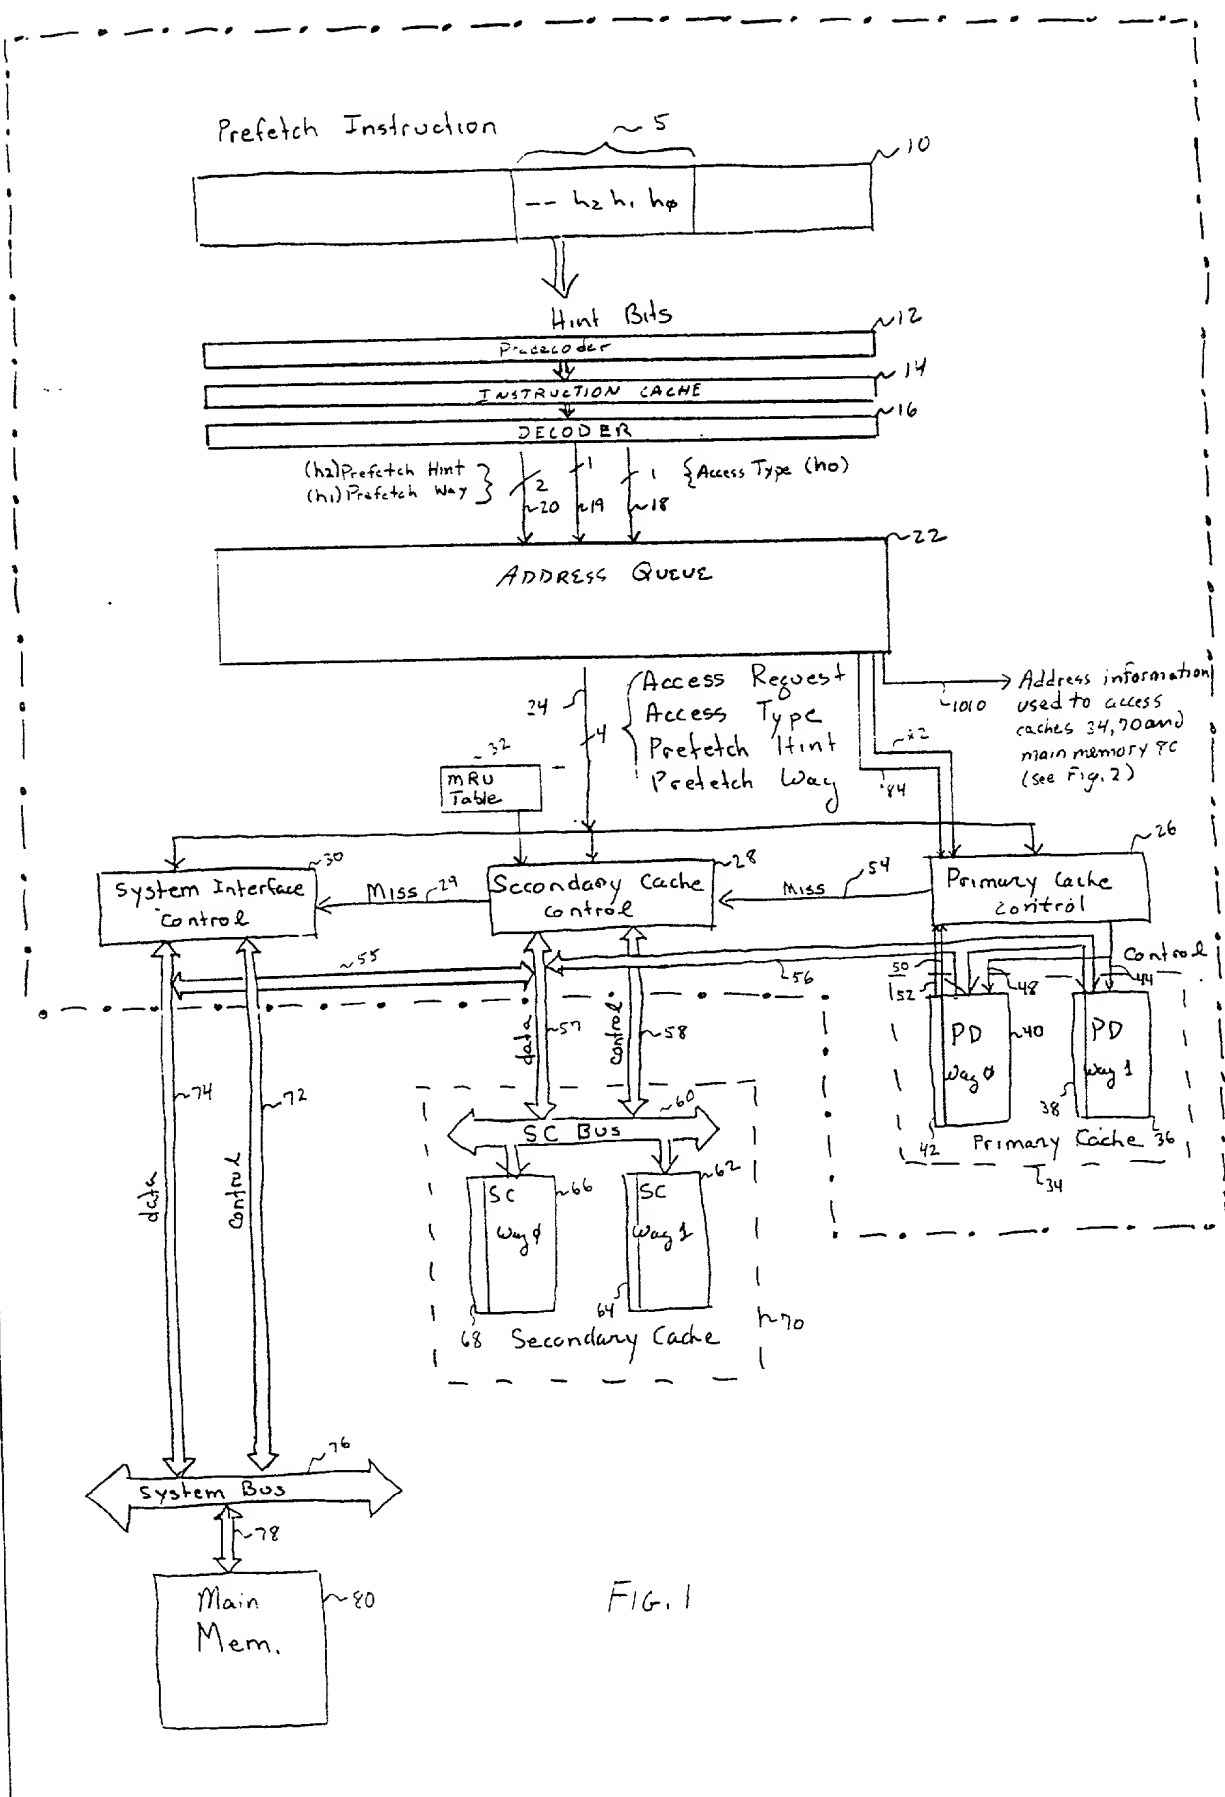 Prefetch Instruction
5
10
-- h2 h1 hφ
Hint Bits
12
Predecoder
14
INSTRUCTION CACHE
16
DECODER
(h2) Prefetch Hint
(h1) Prefetch Way
2
1
1
{Access Type (h0)
20
19
18
22
ADDRESS QUEUE
24
4
Access Request
Access Type
Prefetch Hint
Prefetch Way
1010
Address information
used to access
caches 34, 70 and
main memory 80
(see Fig. 2)
82
84
32
MRU
Table
30
System Interface
Control
Miss
29
28
Secondary Cache
Control
Miss
54
26
Primary Cache
Control
55
56
50
52
48
Control
44
PD
Way φ
40
PD
Way 1
38
42
Primary Cache
36
34
data
57
control
58
60
SC Bus
SC
Way φ
66
SC
Way 1
62
68
64
Secondary Cache
70
data
74
control
72
76
System Bus
78
Main
Mem.
80
FIG. 1